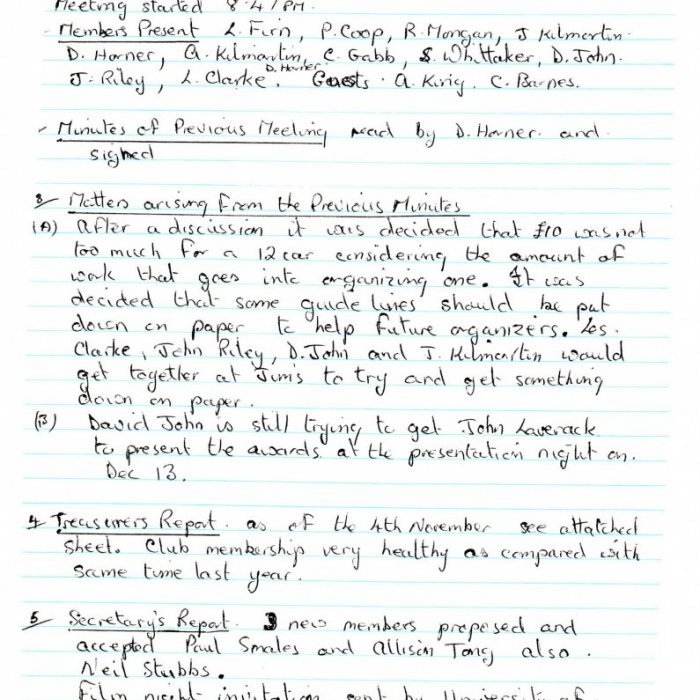 Meeting started 8.47PM.
- Members Present L. Firn, P. Coop, R. Mongan, J Kilmartin.
D. Horner, A. Kilmartin, C. Gabb, S. Whittaker, D. John.
D. Horner
J. Riley, L. Clarke. Guests. A. Kirig. C. Barnes.
- Minutes of Previous Meeting read by D. Horner. and.
signed
3/ Matters arising from the Previous Minutes
(A) After a discussion it was decided that £10 was not
too much for a 12 car considering the amount of
work that goes into organizing one. It was
decided that some guide lines should be put
down on paper to help future organizers. Les.
Clarke, John Riley, D. John and J. Kilmartin would
get together at Jim's to try and get something
down on paper.
(B) David John is still trying to get John Laverack
to present the awards at the presentation night on.
Dec 13.
4/ Treasurers Report. as of the 4th November see attatched
sheet. Club membership very healthy as compared with
same time last year.
5/ Secretary's Report. 3 new members proposed and
accepted Paul Smales and Allison Tong also.
Neil Stubbs.
Film night invitation sent by University of